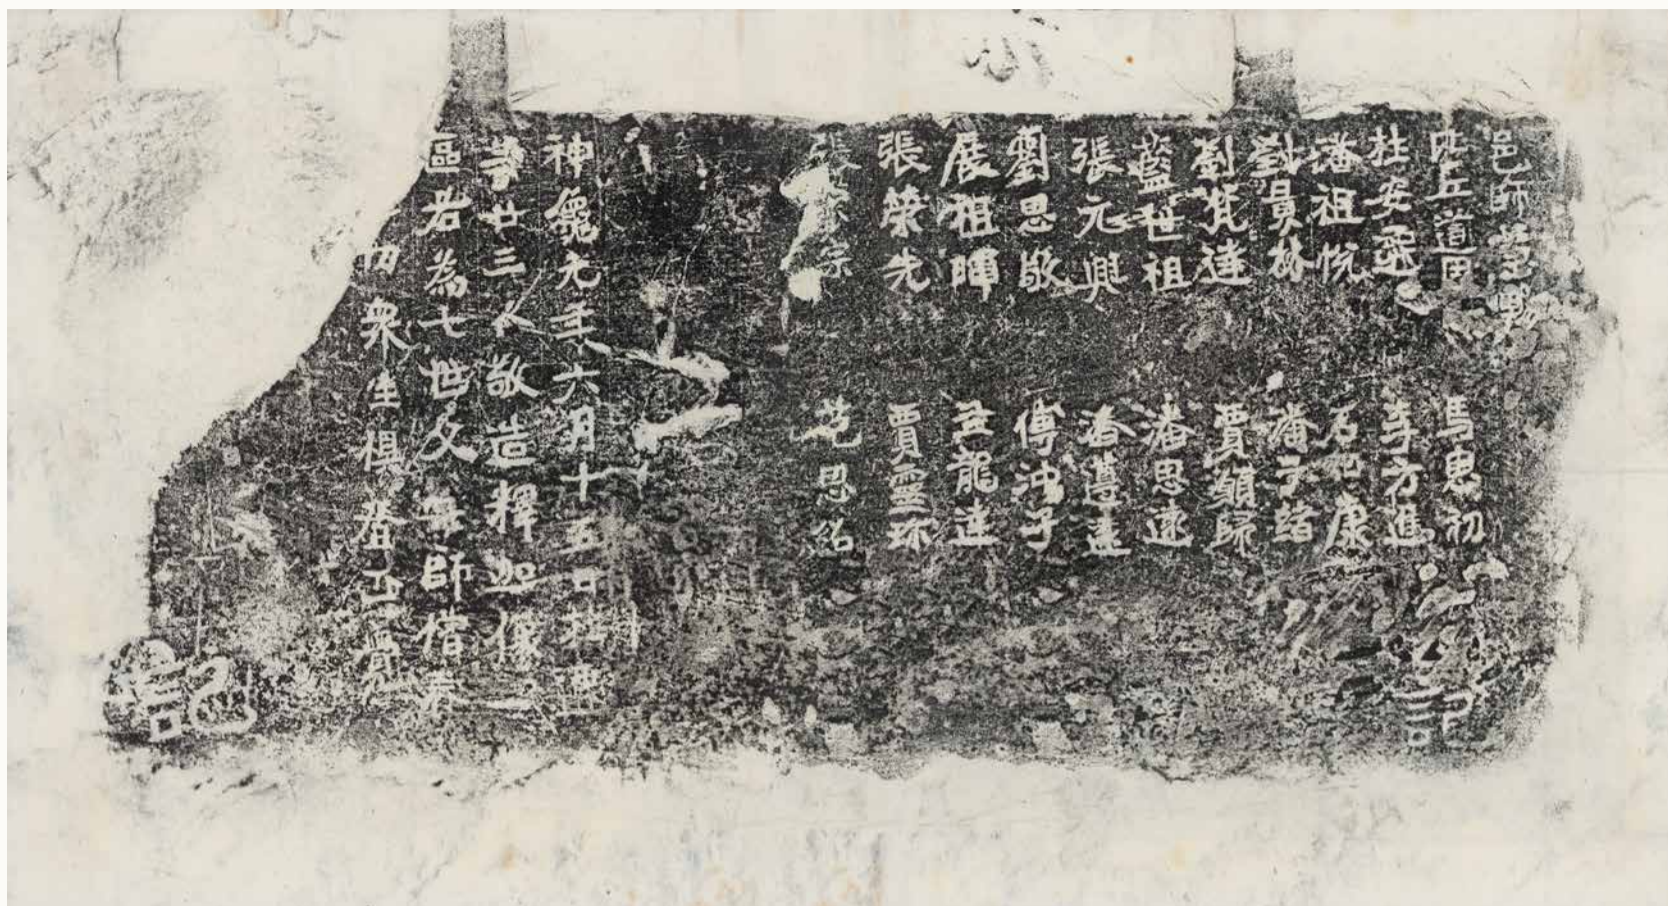 邑師惠暢
比丘道 馬思初
杜安遷 李方進
潘祖悅 石伯康
劉員 潘子緒
劉梵達 賈願歸
藍世祖 潘思遠
張元興 潘遵達
劉思敬 傅沖子
展祖暉 龍達
張榮先 賈靈珍
張宗 范思紹
神龜元年六月十五日杜遷
等廿三人敬造釋迦像一
區若為七世父母師僧眷
切衆生俱登正覺
記
記